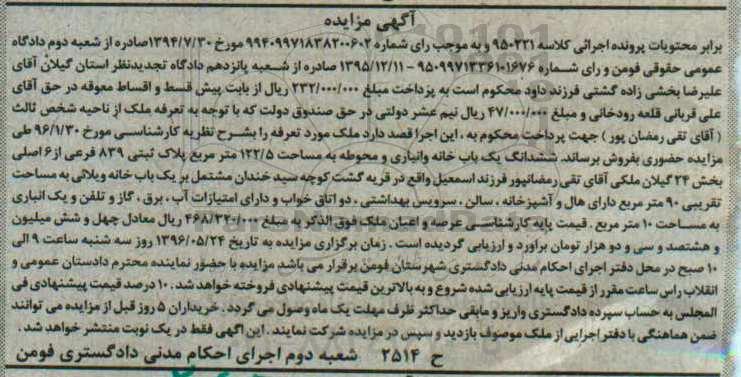 آگهی مزایده
برابر محتویات پرونده اجرائی کلاسه ۹۵۰۲۳۱ و به موجب رای شماره ۹۹۴۰۹۹۷۱۸۳۸۲۰۰۶۰۲ مورخ ۱۳۹۴/۷/۳۰ صادره از شعبه دوم دادگاه
عمومی حقوقی فومن و رای شماره ۹۵۰۹۹۷۱۳۳۶۱۰۱۶۷۶ - ۱۳۹۵/۱۲/۱۱ صادره از شعبه پانزدهم دادگاه تجدیدنظر استان گیلان آقای
علیرضا بخشی زاده گشتی فرزند داود محکوم است به پرداخت مبلغ ۲۳۲/۰۰۰/۰۰۰ ریال از بابت پیش قسط و اقساط معوقه در حق آقای
علی قربانی قلعه رودخانی و مبلغ ۴۷/۰۰۰/۰۰۰ ریال نیم عشر دولتی در حق صندوق دولت که با توجه به تعرفه ملک از ناحیه شخص ثالث
( آقای تقی رمضان پور ) جهت پرداخت محکوم به ، این اجرا قصد دارد ملک مورد تعرفه را بشرح نظریه کارشناسی مورخ ۹۶/۱/۳۰ طی
مزایده حضوری بفروش برساند. ششدانگ یک باب خانه وانباری و محوطه به مساحت ۱۲۲/۵ متر مربع پلاک ثبتی ۸۳۹ فرعی از ۶ اصلی
بخش ۲۴ گیلان ملکی آقای تقی رمضانپور فرزند اسمعیل واقع در قریه گشت کوچه سید خندان مشتمل بر یک باب خانه ویلائی به مساحت
تقریبی ۹۰ متر مربع دارای هال و آشپزخانه ، سالن ، سرویس بهداشتی ، دو اتاق خواب و دارای امتیازات آب ، برق ، گاز و تلفن و یک انباری
به مساحت ۱۰ متر مربع . قیمت پایه کارشناسی عرصه و اعیان ملک فوق الذکر به مبلغ ۴۶۸/۳۲۰/۰۰۰ ریال معادل چهل و شش میلیون
و هشتصد و سی و دو هزار تومان برآورد و ارزیابی گردیده است . زمان برگزاری مزایده به تاریخ ۱۳۹۶/۰۵/۲۴ روز سه شنبه ساعت ۹ الی
۱۰ صبح در محل دفتر اجرای احکام مدنی دادگستری شهرستان فومن برقرار می باشد مزایده با حضور نماینده محترم دادستان عمومی و
انقلاب راس ساعت مقرر از قیمت پایه ارزیابی شده شروع و به بالاترین قیمت پیشنهادی فروخته خواهد شد . ۱۰ درصد قیمت پیشنهادی فی
المجلس به حساب سپرده دادگستری واریز و مابقی حداکثر ظرف مهلت یک ماه وصول می گردد . خریداران ۵ روز قبل از مزایده می توانند
ضمن هماهنگی با دفتر اجرایی از ملک موصوف بازدید و سپس در مزایده شرکت نمایند . این اگهی فقط در یک نوبت منتشر خواهد شد .
ح ۲۵۱۴ شعبه دوم اجرای احکام مدنی دادگستری فومن